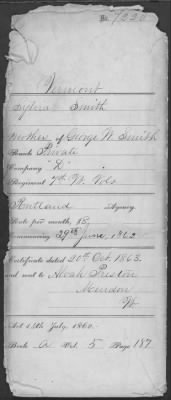 No. 7220
Vermont
Sylvia Smith
Mother of George W. Smith
Rank Private
Company "D"
Regiment 7th Vt. Vols
Rutland Agency.
Rate per month, $8,
Commencing 29th June, 1862
Certificate dated 20th Oct. 1863.
and sent to Alvah Preston
Mendon
Vt.
Act 14th July, 1862.
Book A Vol. 5 Page 187